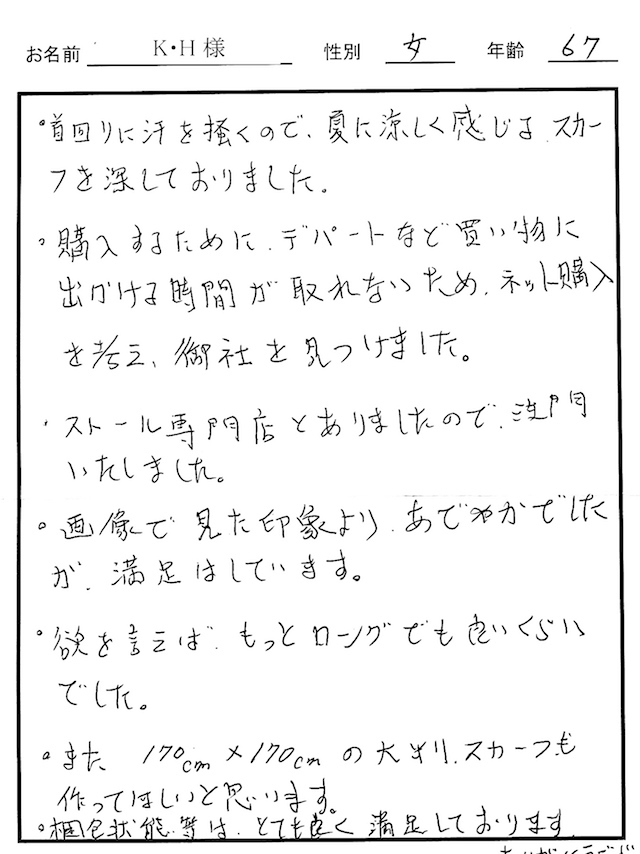 お名前 K・H 様 性別 女 年齢 67
・首回りに汗を掻くので、夏に涼しく感じるスカー
フを深しておりました。
・購入するために、デパートなど買い物に
出かける時間が取れないため、ネット購入
を考え、御社を見つけました。
・ストール専門店とありましたので、注文
いたしました。
・画像で見た印象より、あでやかでした
が、満足はしています。
・欲を言えば、もっとロングでも良いくらい
でした。
・また、170cm×170cmの大判スカーフも
作ってほしいと思います。
・梱包状態等は、とても良く満足しております